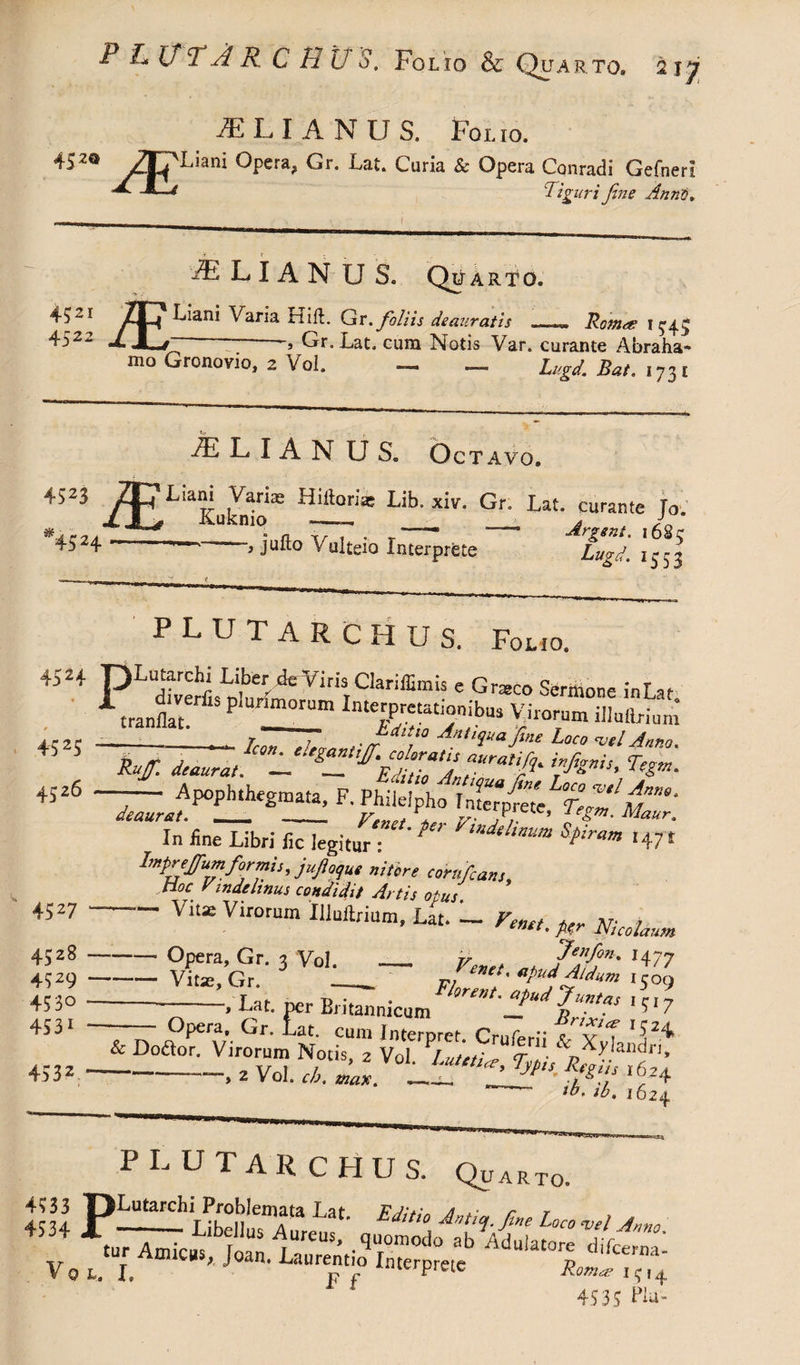 PLUTARCHUS. Folio & Quarto. 217
ÆLIANUS. Folio.
4520 ÆLiani Opera, Gr. Lat. Curia & Opera Conradi Gesneri
Tiguri sine Anno.
ÆLIANUS. Quarto.
4521 ÆLiani Varia Hist. Gr. foliis deauratis —— Romæ 1545
4522 ————, Gr. Lat. cum Notis Var. curante Abraha-
mo Gronovio, 2 Vol. — — Lugd. Bat. 1731
ÆLIANUS. Octavo.
4523 ÆLiani Variæ Historiæ Lib. xiv. Gr. Lat. curante Jo.
Kuknio —— —— — Argent. 1685
*4524 ————, justo Vulteio Interprete Lugd. 1553
PLUTARCHUS. Folio.
4524 PLutarchi Liber de Viris Clarissimis e Græco Sermone in Lat.
diversis plurimorum Interpretationibus Virorum illustrium
translat. —— Editio Antiqua sine Loco vel Anno.
4525 ———— Icon. elegantiss. coloratis auratisq. insignis, Tegm.
Russ. deaurat. — — Editio Antiqua sine Loco vel Anno.
4526 —— Apophthegmata, F. Philelpho Interprete, Tegm. Maur.
deaurat. —— —— Venet. per Vindelinum Spiram 1471
In fine Libri sic legitur:
Impressum formis, justoque nitore coruscans,
Hoc Vindelinus condidit Artis opus.
4527 ——— Vitæ Virorum Illustrium, Lat. — Venet. per Nicolaum
Jenson. 1477
4528 ——— Opera, Gr. 3 Vol. —— Venet. apud Aldum 1509
4529 ——— Vitæ, Gr. —— Florent. apud Juntas 1517
4530 ————, Lat. per Britannicum — Brixiæ 1524
4531 ——— Opera, Gr. Lat. cum Interpret. Cruserii & Xylandri,
& Doctor. Virorum Notis, 2 Vol. Lutetiæ, Typis Regiis 1624
4532 ————, 2 Vol. ch. max. —— —— ib. ib. 1624
PLUTARCHUS. Quarto.
4533 PLutarchi Problemata Lat. Editio Antiq. sine Loco vel Anno.
4534 ——— Libellus Aureus, quomodo ab Adulatore discerna-
tur Amicus, Joan. Laurentio Interprete Romæ 1514
Vol. I. Ff
4535 Plu-